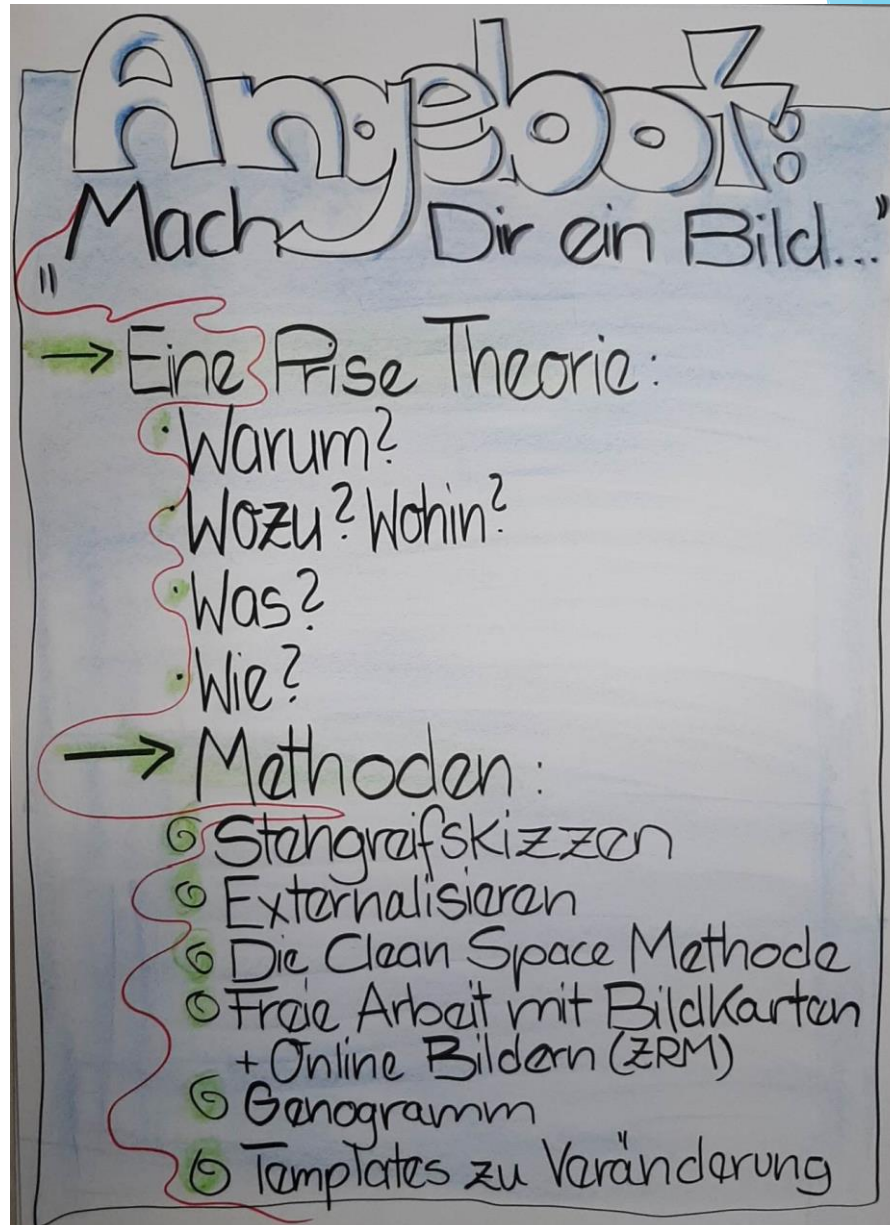 Angebot:
"Mach Dir ein Bild..."
→ Eine Prise Theorie:
· Warum?
· Wozu? Wohin?
· Was?
· Wie?
→ Methoden:
Stehgreifskizzen
Externalisieren
Die Clean Space Methode
Freie Arbeit mit Bildkarten
+ Online Bildern (ZRM)
Genogramm
Templates zu Veränderung